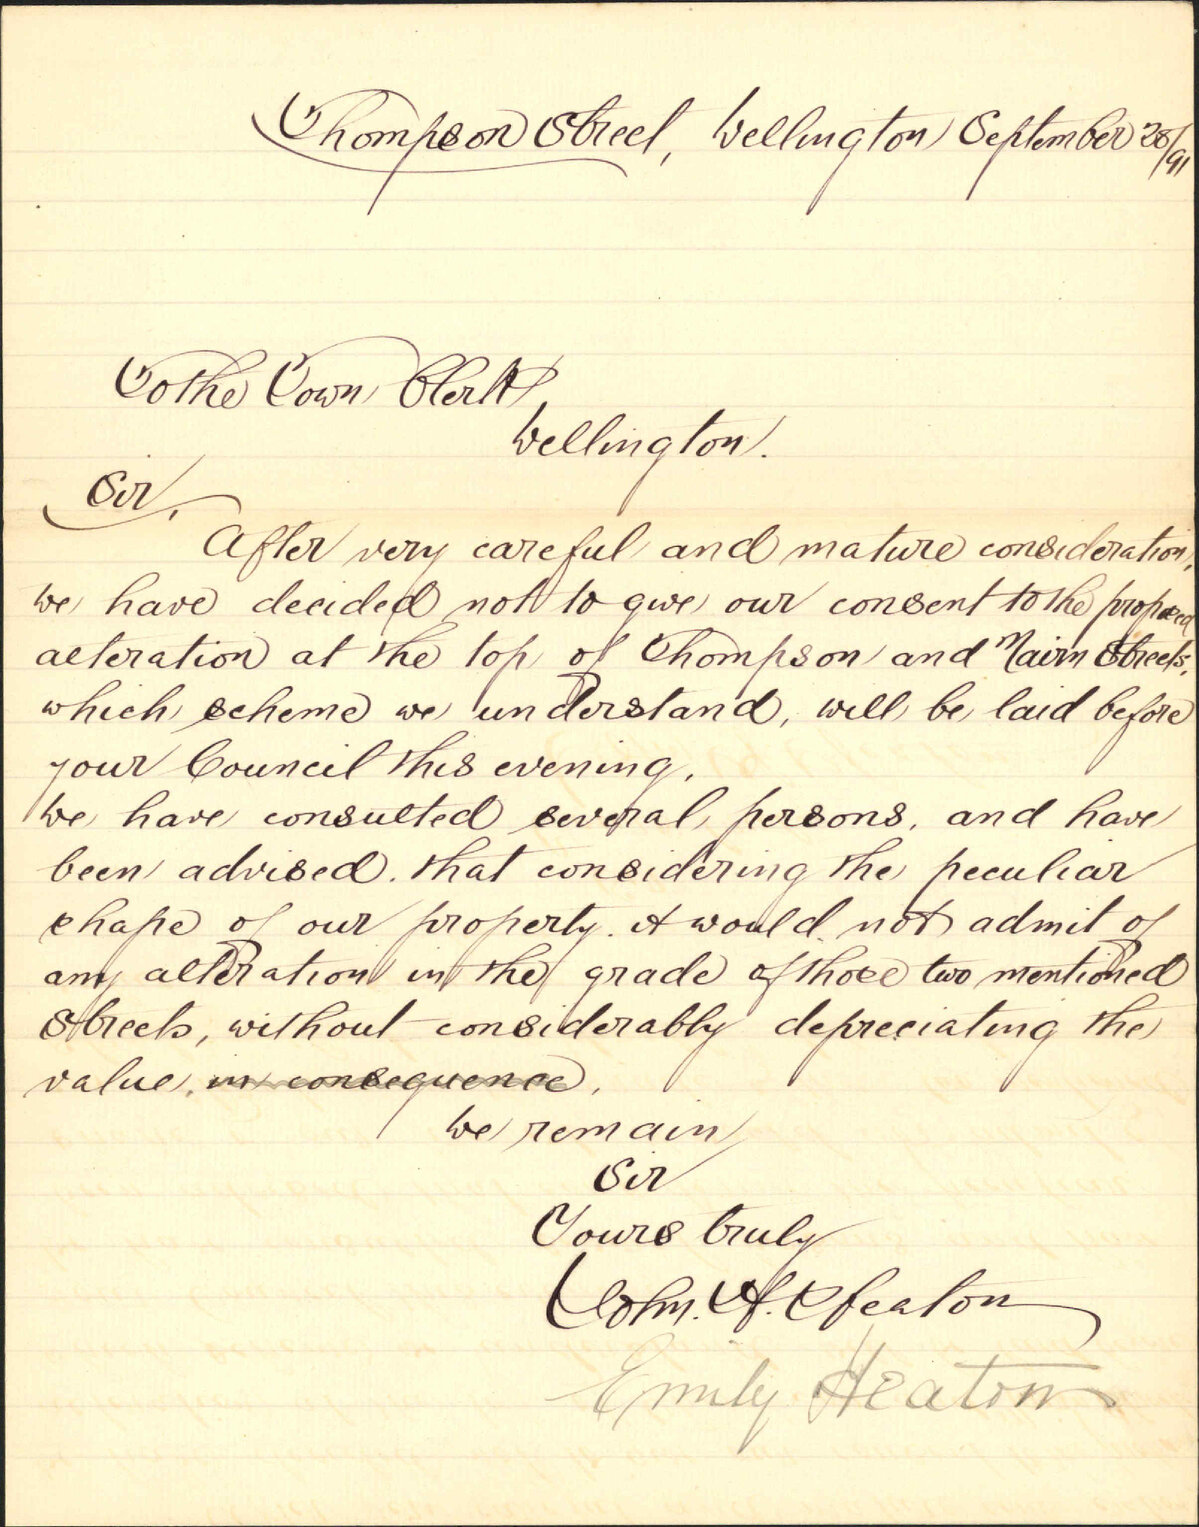 Thompson Street, Wellington September 28/91
To the Town Clerk
Wellington.
Sir,
After very careful and mature consideration,
we have decided not to give our consent to the proposed
alteration at the top of Thompson and Nairn Streets,
which scheme we understand, will be laid before
your Council this evening.
We have consulted several persons, and have
been advised. that considering the peculiar
shape of our property. it would not admit of
any alteration in the grade of those two mentioned
Streets, without considerably depreciating the
value. in consequence.
We remain
Sir
Yours truly
John. H. Heaton
Emily Heaton